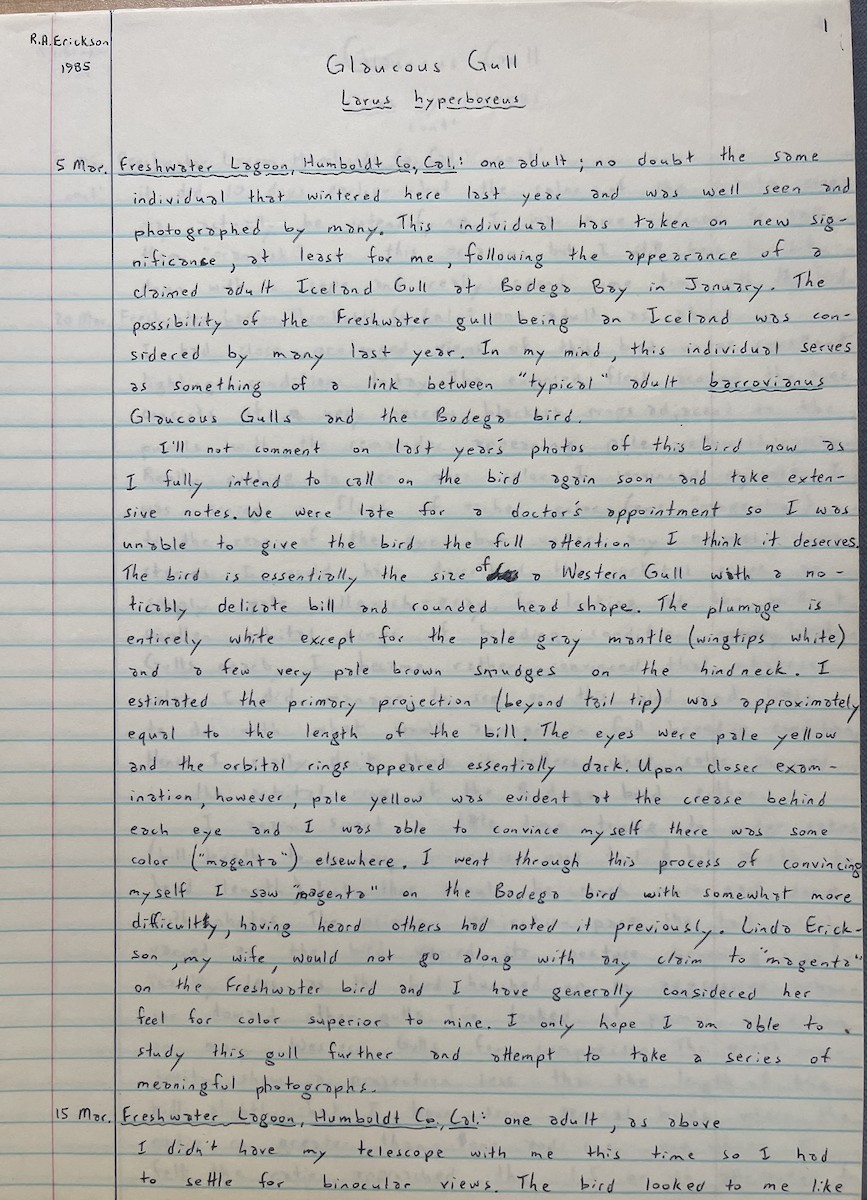 1
R.A. Erickson
1985
Glaucous Gull
Larus hyperboreus
5 Mar. Freshwater Lagoon, Humboldt Co., Cal.: one adult; no doubt the same
individual that wintered here last year and was well seen and
photographed by many. This individual has taken on new sig-
nificance, at least for me, following the appearance of a
claimed adult Iceland Gull at Bodega Bay in January. The
possibility of the Freshwater gull being an Iceland was con-
sidered by many last year. In my mind, this individual serves
as something of a link between "typical" adult barrovianus
Glaucous Gulls and the Bodega bird.
I'll not comment on last year's photos of this bird now as
I fully intend to call on the bird again soon and take exten-
sive notes. We were late for a doctor's appointment so I was
unable to give the bird the full attention I think it deserves.
The bird is essentially the size of a Western Gull with a no-
ticably delicate bill and rounded head shape. The plumage is
entirely white except for the pale gray mantle (wingtips white)
and a few very pale brown smudges on the hindneck. I
estimated the primary projection (beyond tail tip) was approximately
equal to the length of the bill. The eyes were pale yellow
and the orbital rings appeared essentially dark. Upon closer exam-
ination, however, pale yellow was evident at the crease behind
each eye and I was able to convince myself there was some
color ("magenta") elsewhere. I went through this process of convincing
myself I saw "magenta" on the Bodega bird with somewhat more
difficulty, having heard others had noted it previously. Linda Erick-
son, my wife, would not go along with any claim to "magenta"
on the Freshwater bird and I have generally considered her
feel for color superior to mine. I only hope I am able to
study this gull further and attempt to take a series of
meaningful photographs.
15 Mar. Freshwater Lagoon, Humboldt Co., Cal.: one adult, as above
I didn't have my telescope with me this time so I had
to settle for binocular views. The bird looked to me like